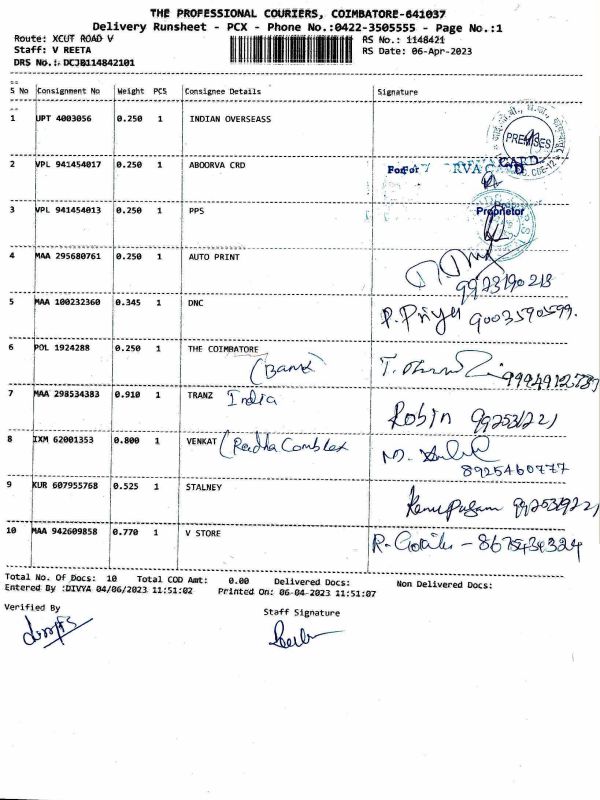 THE PROFESSIONAL COURIERS, COIMBATORE-641037
Delivery Runsheet - PCX - Phone No.:0422-3505555 - Page No.:1
Route: XCUT ROAD V RS No.: 1148421
Staff: V REETA RS Date: 06-Apr-2023
DRS No.: DCJB114842101
S No Consignment No Weight PCS Consignee Details Signature
1 UPT 4003056 0.250 1 INDIAN OVERSEASS
PREMISES
2 VPL 941454017 0.250 1 ABOORVA CRD
3 VPL 941454013 0.250 1 PPS
Proprietor
4 MAA 295680761 0.250 1 AUTO PRINT
5 MAA 100232360 0.345 1 DNC P. Priya 9003590599.
6 POL 1924288 0.250 1 THE COIMBATORE
(Bank)
7 MAA 298534383 0.910 1 TRANZ India
Robin
8 IXM 62001353 0.800 1 VENKAT (Radha Complex
8925460777
9 KUR 607955768 0.525 1 STALNEY
10 MAA 942609858 0.770 1 V STORE
Total No. Of Docs: 10 Total COD Amt: 0.00 Delivered Docs: Non Delivered Docs:
Entered By :DIVYA 04/06/2023 11:51:02 Printed On: 06-04-2023 11:51:07
Verified By Staff Signature